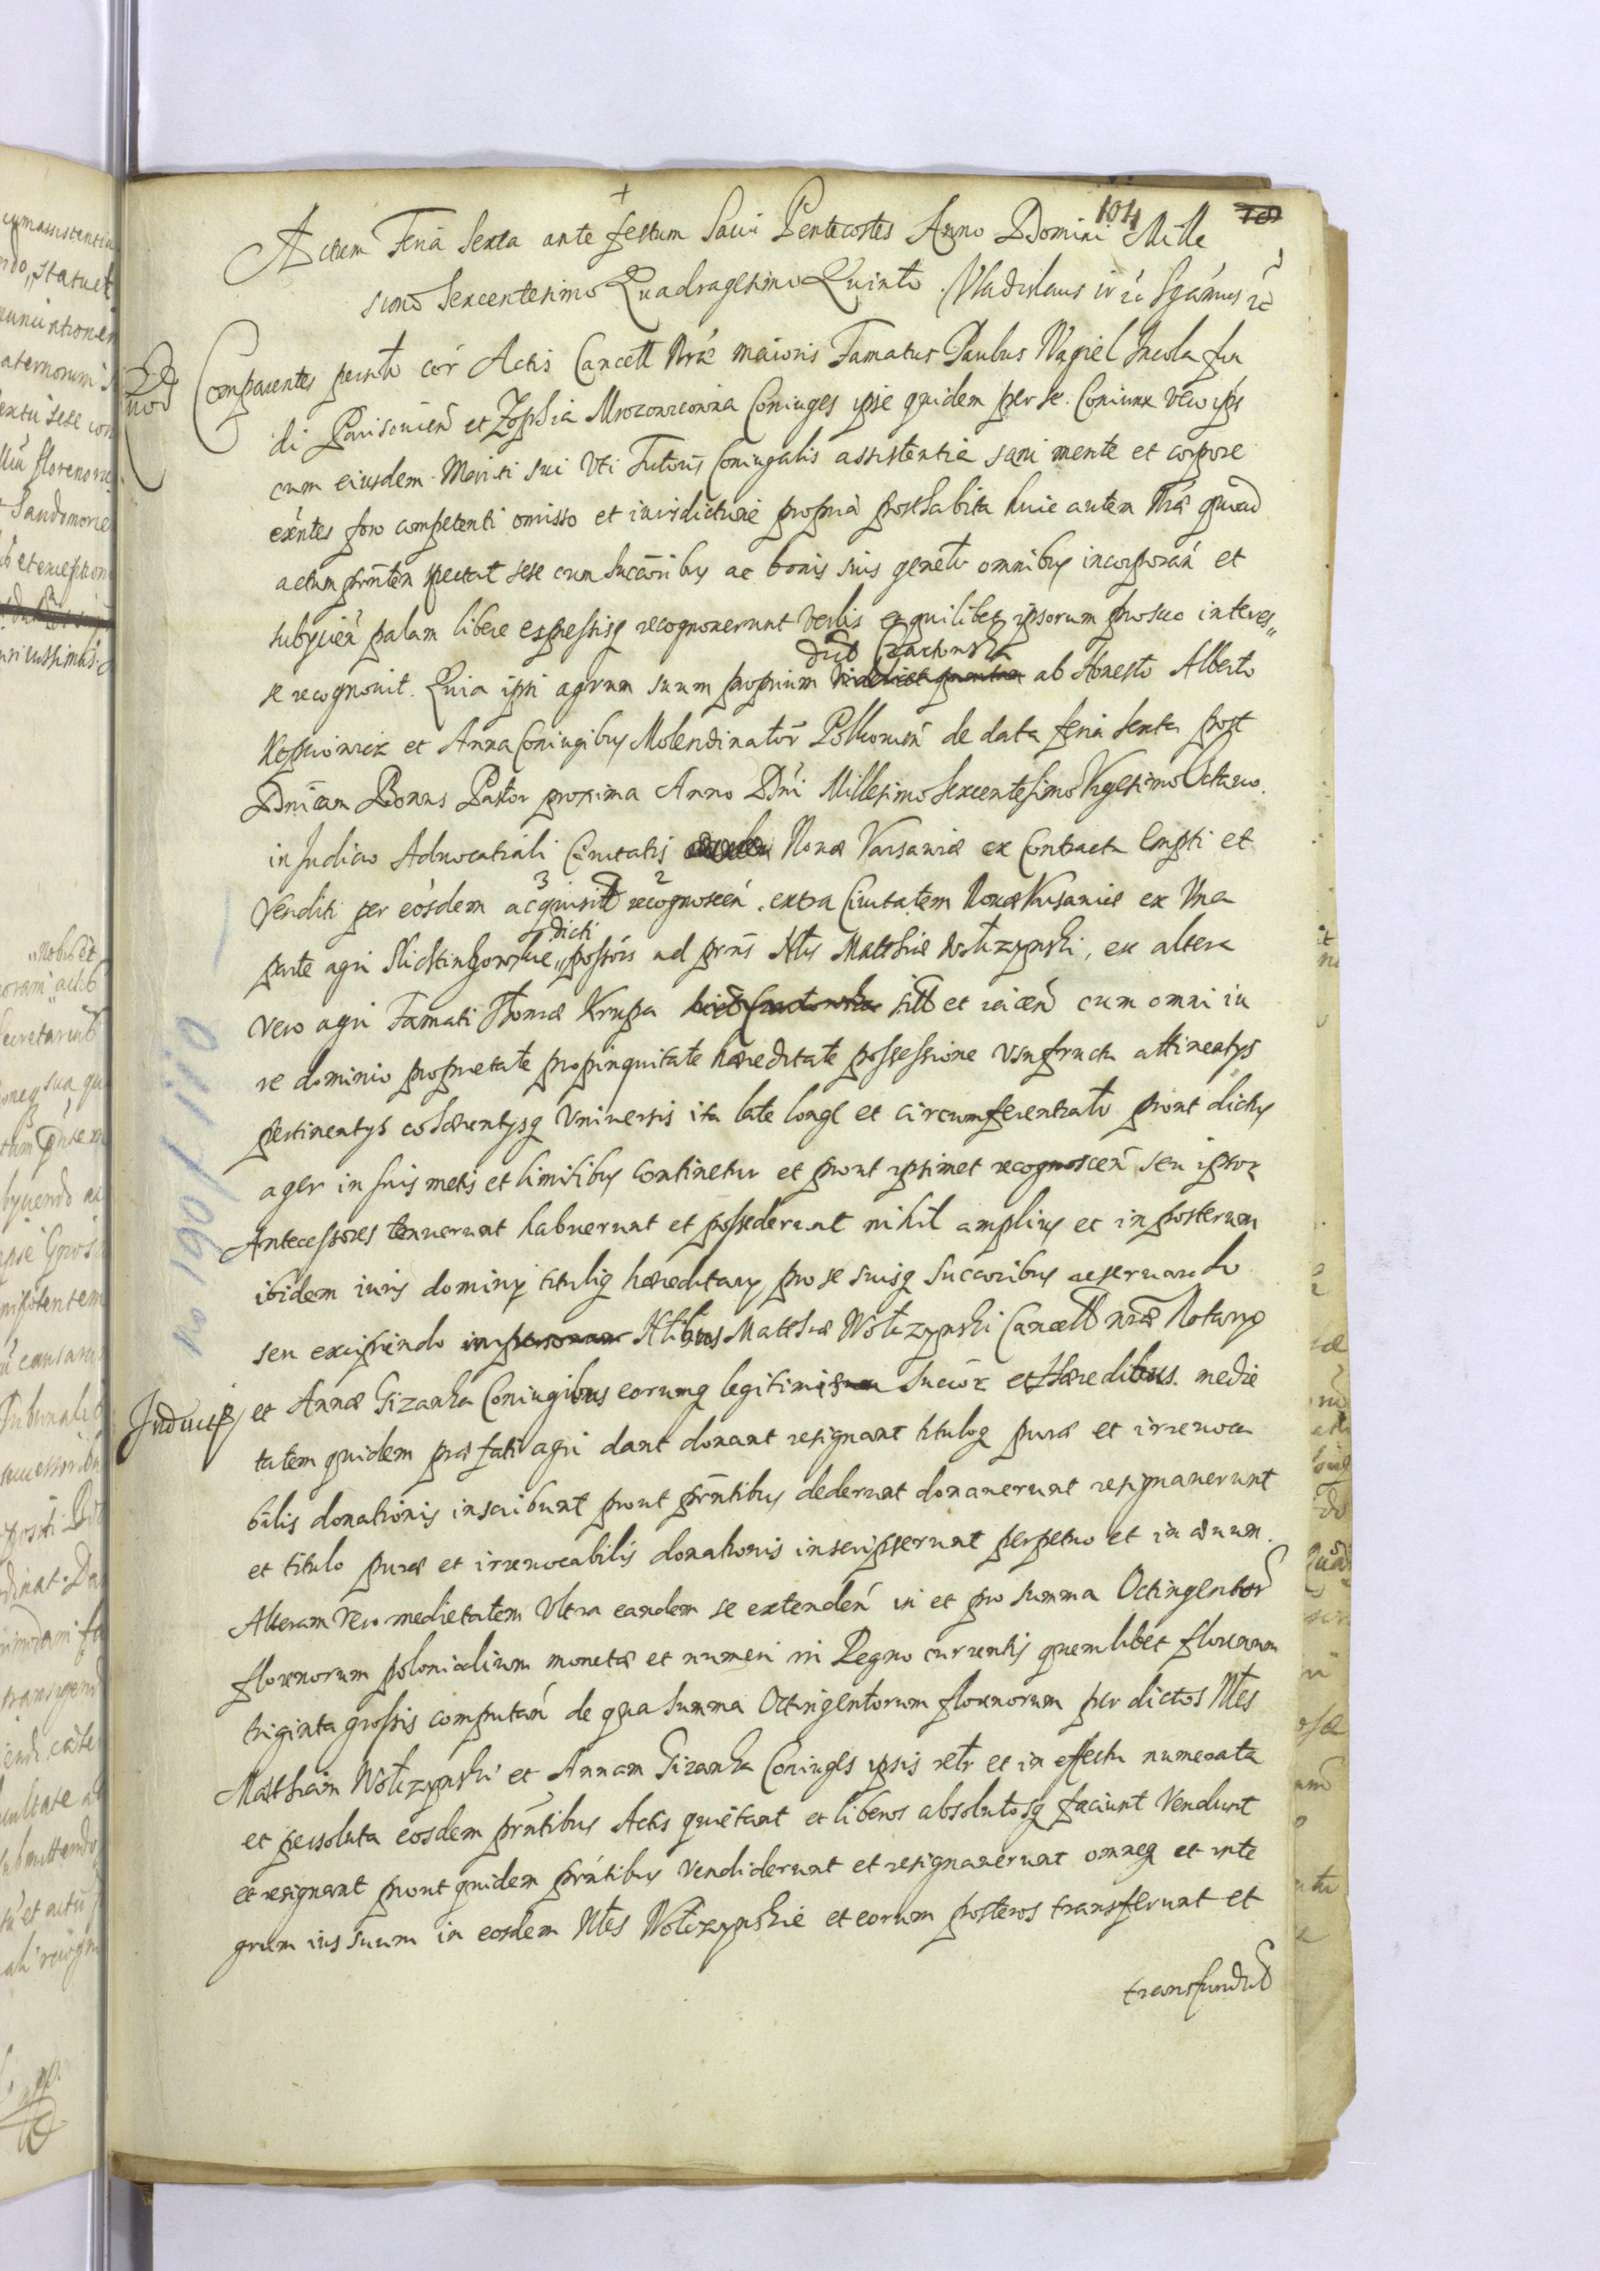 104
Actum Feria Sexta ante festum Sacri Pentecostes Anno Domini Mille
simo Sexcentesimo Quadragesimo Quinto. Vladislaus
Comparentes cor Actis Cancell Nræ maioris Famatus Paulus Wagiel Incola fun
di Parisouien et Zophia Mrozowicowna Coniuges ipse quidem per se. Coniunx vero ips
cum eiusdem Mariti sui Vti Tutoris Coniugalis assistentia sani mente et corpore
exntes foro competenti omisso et iurisdictione propria posthabita huic autem Nræ quoad
actum prntem spectat sese cum Succoribus ac bonis suis genelr omnibus incorporan et
subycien palam libere expressisq recognouerunt verbis et quilibet ipsorum pro suo interes„
se recognouit. Quia ipsi agrum suum proprium dict ab Honesto Alberto
et Anna Coniugibus Molendinator de data feria sexta post
Dnicam Bonus Pastor proxima Anno Dni Millesimo Sexcentesimo Vigesimo Octauo.
in Judicio Aduocatiali Ciuitatis Nouæ Varsauiæ ex Contractu Empti et
Venditi per eosdem 3 acquisit 2 recognoscen. extra Ciuitatem Nouæ Varsauiæ ex Vna
parte agri dicti possoris ad prns Nlis Matthiæ Wolczynski, ex altera
vero agri Famati Thomæ Krupa sitt et iacen cum omni iu
re dominio proprietate propinquitate hæreditate possessione vsufructu attinentys
pertinentys cohærentysq Vniuersis ita late longe et circumferentialr prout dictus
ager in suis metis et limitibus continetur et prout ipsimet recognoscen seu ipsor
Antecessores tenuerunt habuerunt et possederunt nihil amplius et in posterum
ibidem iuris dominy tituliq hæreditary pro se suisq Succoribus reseruando
seu excipiendo Nlibus Matthiæ Wolczynski Cancell nræ Notario
et Annæ Gizanka Coniugibus eorumq legitimis Succor et Hæredibus medie
tatem quidem præfati agri dant donant resignant tituloq puræ et irreuoca
bilis donationis inscribunt prout prntibus dederunt donauerunt resignauerunt
et titulo puræ et irreuocabilis donationis inscripserunt perpetuo et in æuum.
Alteram vero medietatem Vltra eandem se extenden in et pro summa Octingentor
florenorum polonicalium monetæ et numeri in Regno currentis quemlibet florenum
triginta grossis computan de qua summa Octingentorum florenorum per dictos Nles
Matthiam Wolczynski et Annam Gizanka Coniuges ipsis relr et in effectu numerata
et persoluta eosdem prntibus Actis quietant et liberos absolutosq faciunt Vendunt
et resignant prout quidem prntibus vendiderunt et resignauerunt omneq et inte
grum ius suum in eosdem Nles Wolczynskie et eorum posteros transferunt et
transfundud